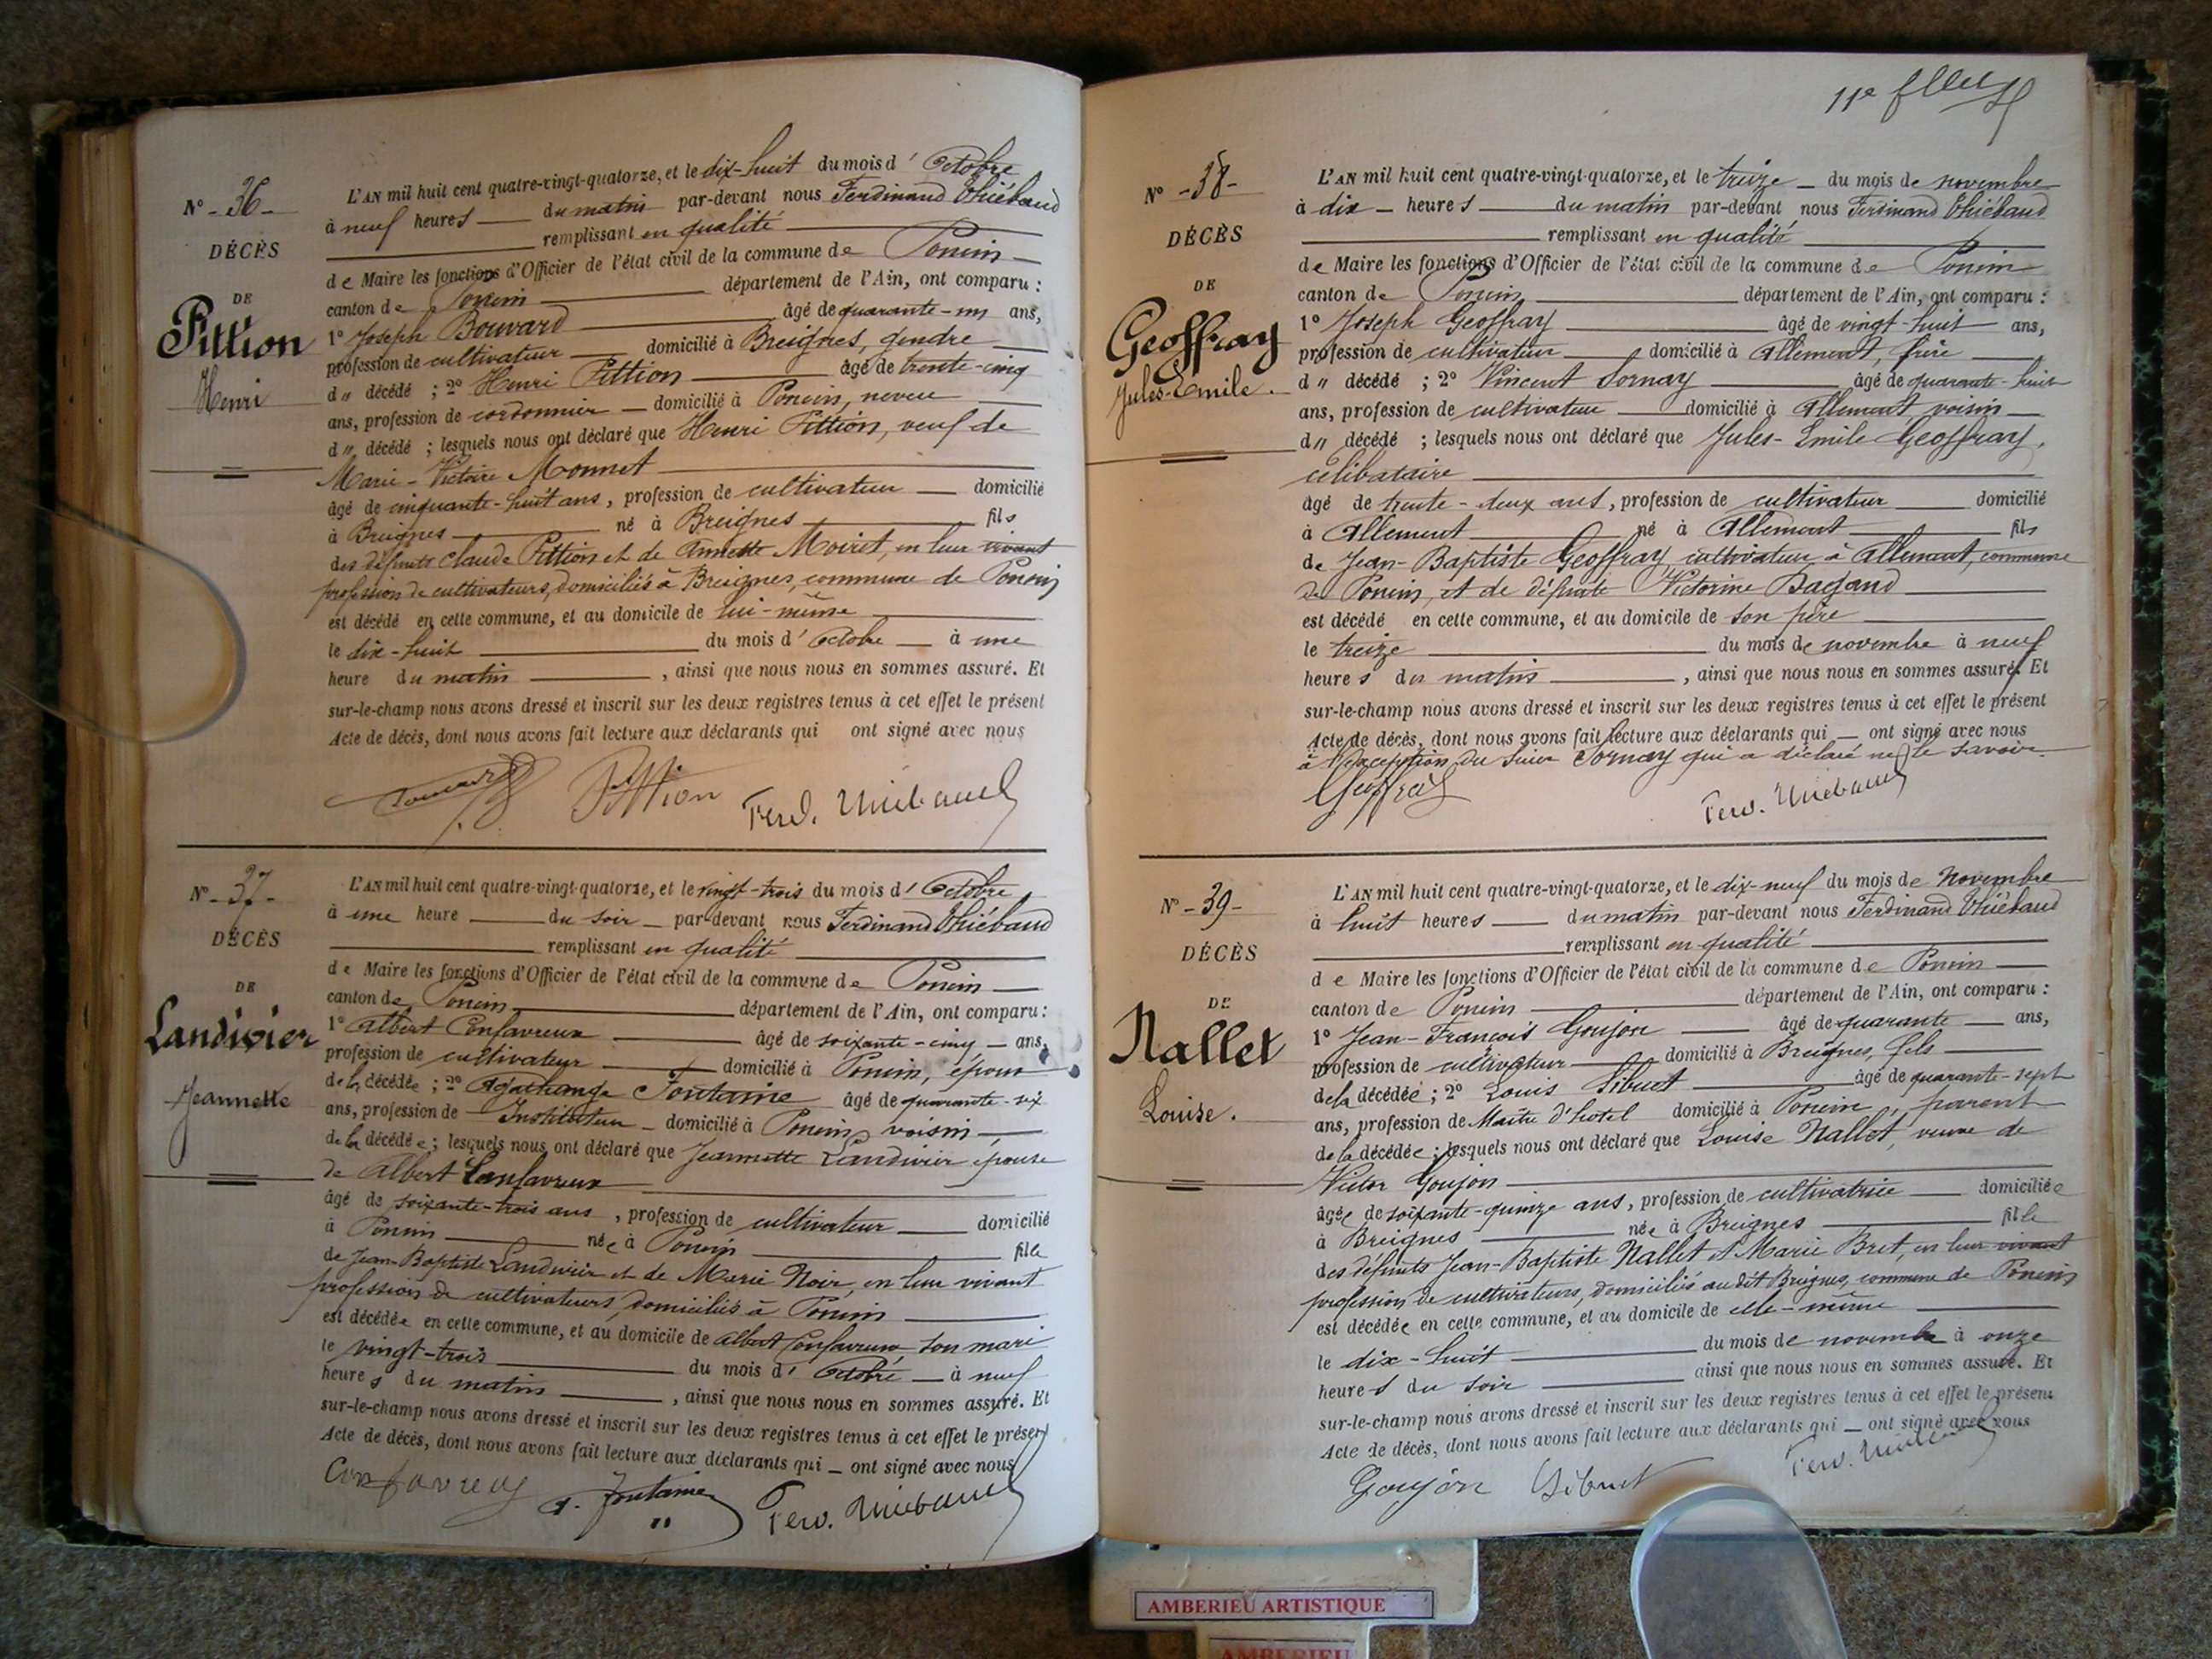 N° - 36 -
DÉCÈS
DE
Pittion
Henri
L'AN mil huit cent quatre-vingt-quatorze, et le dix-huit du mois d' Octobre
à neuf heures du matin par-devant nous Ferdinand Thiébaud
remplissant en qualité
de Maire les fonctions d'Officier de l'état civil de la commune de Poncin
canton de Poncin département de l'Ain, ont comparu :
1° Joseph Bouvard âgé de quarante-un ans,
profession de cultivateur domicilié à Breignes, gendre
d u décédé ; 2° Henri Pittion âgé de trente-cinq
ans, profession de cordonnier domicilié à Poncin, neveu
d u décédé ; lesquels nous ont déclaré que Henri Pittion, veuf de
Marie-Victoire Monnet
âgé de cinquante-huit ans, profession de cultivateur domicilié
à Breignes né à Breignes fils
des défunts Claude Pittion et de Annette Moiret, en leur vivant
profession de cultivateurs, domiciliés à Breignes, commune de Poncin
est décédé en cette commune, et au domicile de lui-même
le dix-huit du mois d' Octobre à une
heure du matin , ainsi que nous nous en sommes assuré. Et
sur-le-champ nous avons dressé et inscrit sur les deux registres tenus à cet effet le présent
Acte de décès, dont nous avons fait lecture aux déclarants qui ont signé avec nous
Pittion Ferd. Thiébaud
N° - 37 -
DÉCÈS
DE
Landivier
Jeannette
L'AN mil huit cent quatre-vingt-quatorze, et le vingt-trois du mois d' Octobre
à une heure du soir par-devant nous Ferdinand Thiébaud
remplissant en qualité
de Maire les fonctions d'Officier de l'état civil de la commune de Poncin
canton de Poncin département de l'Ain, ont comparu :
1° Albert Confavreux âgé de soixante-cinq ans,
profession de cultivateur domicilié à Poncin, époux
de la décédée ; 2° Agathange Fontaine âgé de quarante-six
ans, profession de Instituteur domicilié à Poncin, voisin
de la décédée ; lesquels nous ont déclaré que Jeannette Landivier épouse
de Albert Confavreux
âgé de soixante-trois ans , profession de cultivateur domicilié
à Poncin née à Poncin fille
de Jean-Baptiste Landivier et de Marie Noir, en leur vivant
profession de cultivateurs, domiciliés à Poncin
est décédée en cette commune, et au domicile de Albert Confavreux son mari
le vingt-trois du mois d' Octobre à neuf
heures du matin , ainsi que nous nous en sommes assuré. Et
sur-le-champ nous avons dressé et inscrit sur les deux registres tenus à cet effet le présent
Acte de décès, dont nous avons fait lecture aux déclarants qui ont signé avec nous
Confavreux A. Fontaine Ferd. Thiébaud
11e
N° - 38 -
DÉCÈS
DE
Geoffray
Jules-Emile.
L'AN mil huit cent quatre-vingt-quatorze, et le treize du mois de novembre
à dix heures du matin par-devant nous Ferdinand Thiébaud
remplissant en qualité
de Maire les fonctions d'Officier de l'état civil de la commune de Poncin
canton de Poncin département de l'Ain, ont comparu :
1° Joseph Geoffray âgé de vingt-huit ans,
profession de cultivateur domicilié à Allement, frère
d u décédé ; 2° Vincent Sornay âgé de quarante-huit
ans, profession de cultivateur domicilié à Allement voisin
d u décédé ; lesquels nous ont déclaré que Jules-Emile Geoffray,
célibataire
âgé de trente-deux ans, profession de cultivateur domicilié
à Allement né à Allement fils
de Jean-Baptiste Geoffray, cultivateur à Allement, commune
de Poncin, et de défunte Victorine Bagand
est décédé en cette commune, et au domicile de son père
le treize du mois de novembre à neuf
heures du matin , ainsi que nous nous en sommes assuré. Et
sur-le-champ nous avons dressé et inscrit sur les deux registres tenus à cet effet le présent
Acte de décès, dont nous avons fait lecture aux déclarants qui ont signé avec nous
à l'exception du sieur Sornay qui a déclaré ne le savoir
Geoffray Ferd. Thiébaud
N° - 39 -
DÉCÈS
DE
Nallet
Louise.
L'AN mil huit cent quatre-vingt-quatorze, et le dix-neuf du mois de Novembre
à huit heures du matin par-devant nous Ferdinand Thiébaud
remplissant en qualité
de Maire les fonctions d'Officier de l'état civil de la commune de Poncin
canton de Poncin département de l'Ain, ont comparu :
1° Jean-François Goujon âgé de quarante ans,
profession de cultivateur domicilié à Breignes, fils
de la décédée ; 2° Louis Sibuet âgé de quarante-sept
ans, profession de Maître d'hotel domicilié à Poncin, parent
de la décédée ; lesquels nous ont déclaré que Louise Nallet, veuve de
Victor Goujon
âgée de soixante-quinze ans, profession de cultivatrice domiciliée
à Breignes née à Breignes fille
des défunts Jean-Baptiste Nallet et Marie Bret, en leur vivant
profession de cultivateurs, domiciliés audit Breignes, commune de Poncin
est décédée en cette commune, et au domicile de elle-même
le dix-huit du mois de novembre à onze
heures du soir ainsi que nous nous en sommes assuré. Et
sur-le-champ nous avons dressé et inscrit sur les deux registres tenus à cet effet le présent
Acte de décès, dont nous avons fait lecture aux déclarants qui ont signé avec nous
Goujon Sibuet Ferd. Thiébaud
AMBERIEU ARTISTIQUE
AMBERIEU